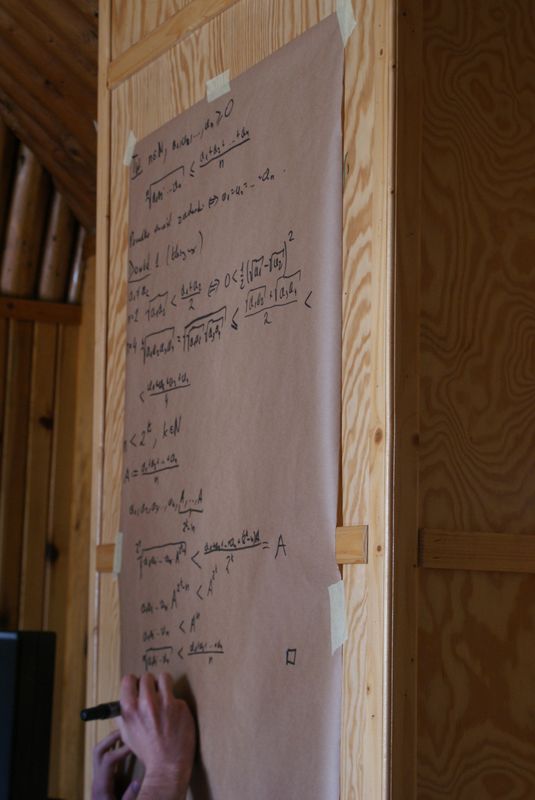 Tw. n∈N, a₁,a₂,...,aₙ ≥ 0
ⁿ√(a₁a₂...aₙ) ≤ (a₁+a₂+...+aₙ)/n
zachodzi ⇔ a₁=a₂=...=aₙ.
Dowód 1
a₁≠a₂
n=2 √(a₁a₂) < (a₁+a₂)/2 ⇔ 0 < ½(√a₁-√a₂)²
n=4 ⁴√(a₁a₂a₃a₄) = √(√(a₁a₂)√(a₃a₄)) ≤ (√(a₁a₂)+√(a₃a₄))/2 <
< (a₁+a₂+a₃+a₄)/4
n < 2ᵏ, k∈N
A := (a₁+a₂+...+aₙ)/n
a₁,a₂,a₃,...,aₙ,A,...,A
2ᵏ-n
√(a₁a₂...aₙ A^(2ᵏ-n)) < (a₁+a₂+...+aₙ+(2ᵏ-n)A)/2ᵏ = A
a₁a₂...aₙ A^(2ᵏ-n) < A^(2ᵏ)
a₁a₂...aₙ < Aⁿ
ⁿ√(a₁a₂...aₙ) < (a₁+a₂+...+aₙ)/n □